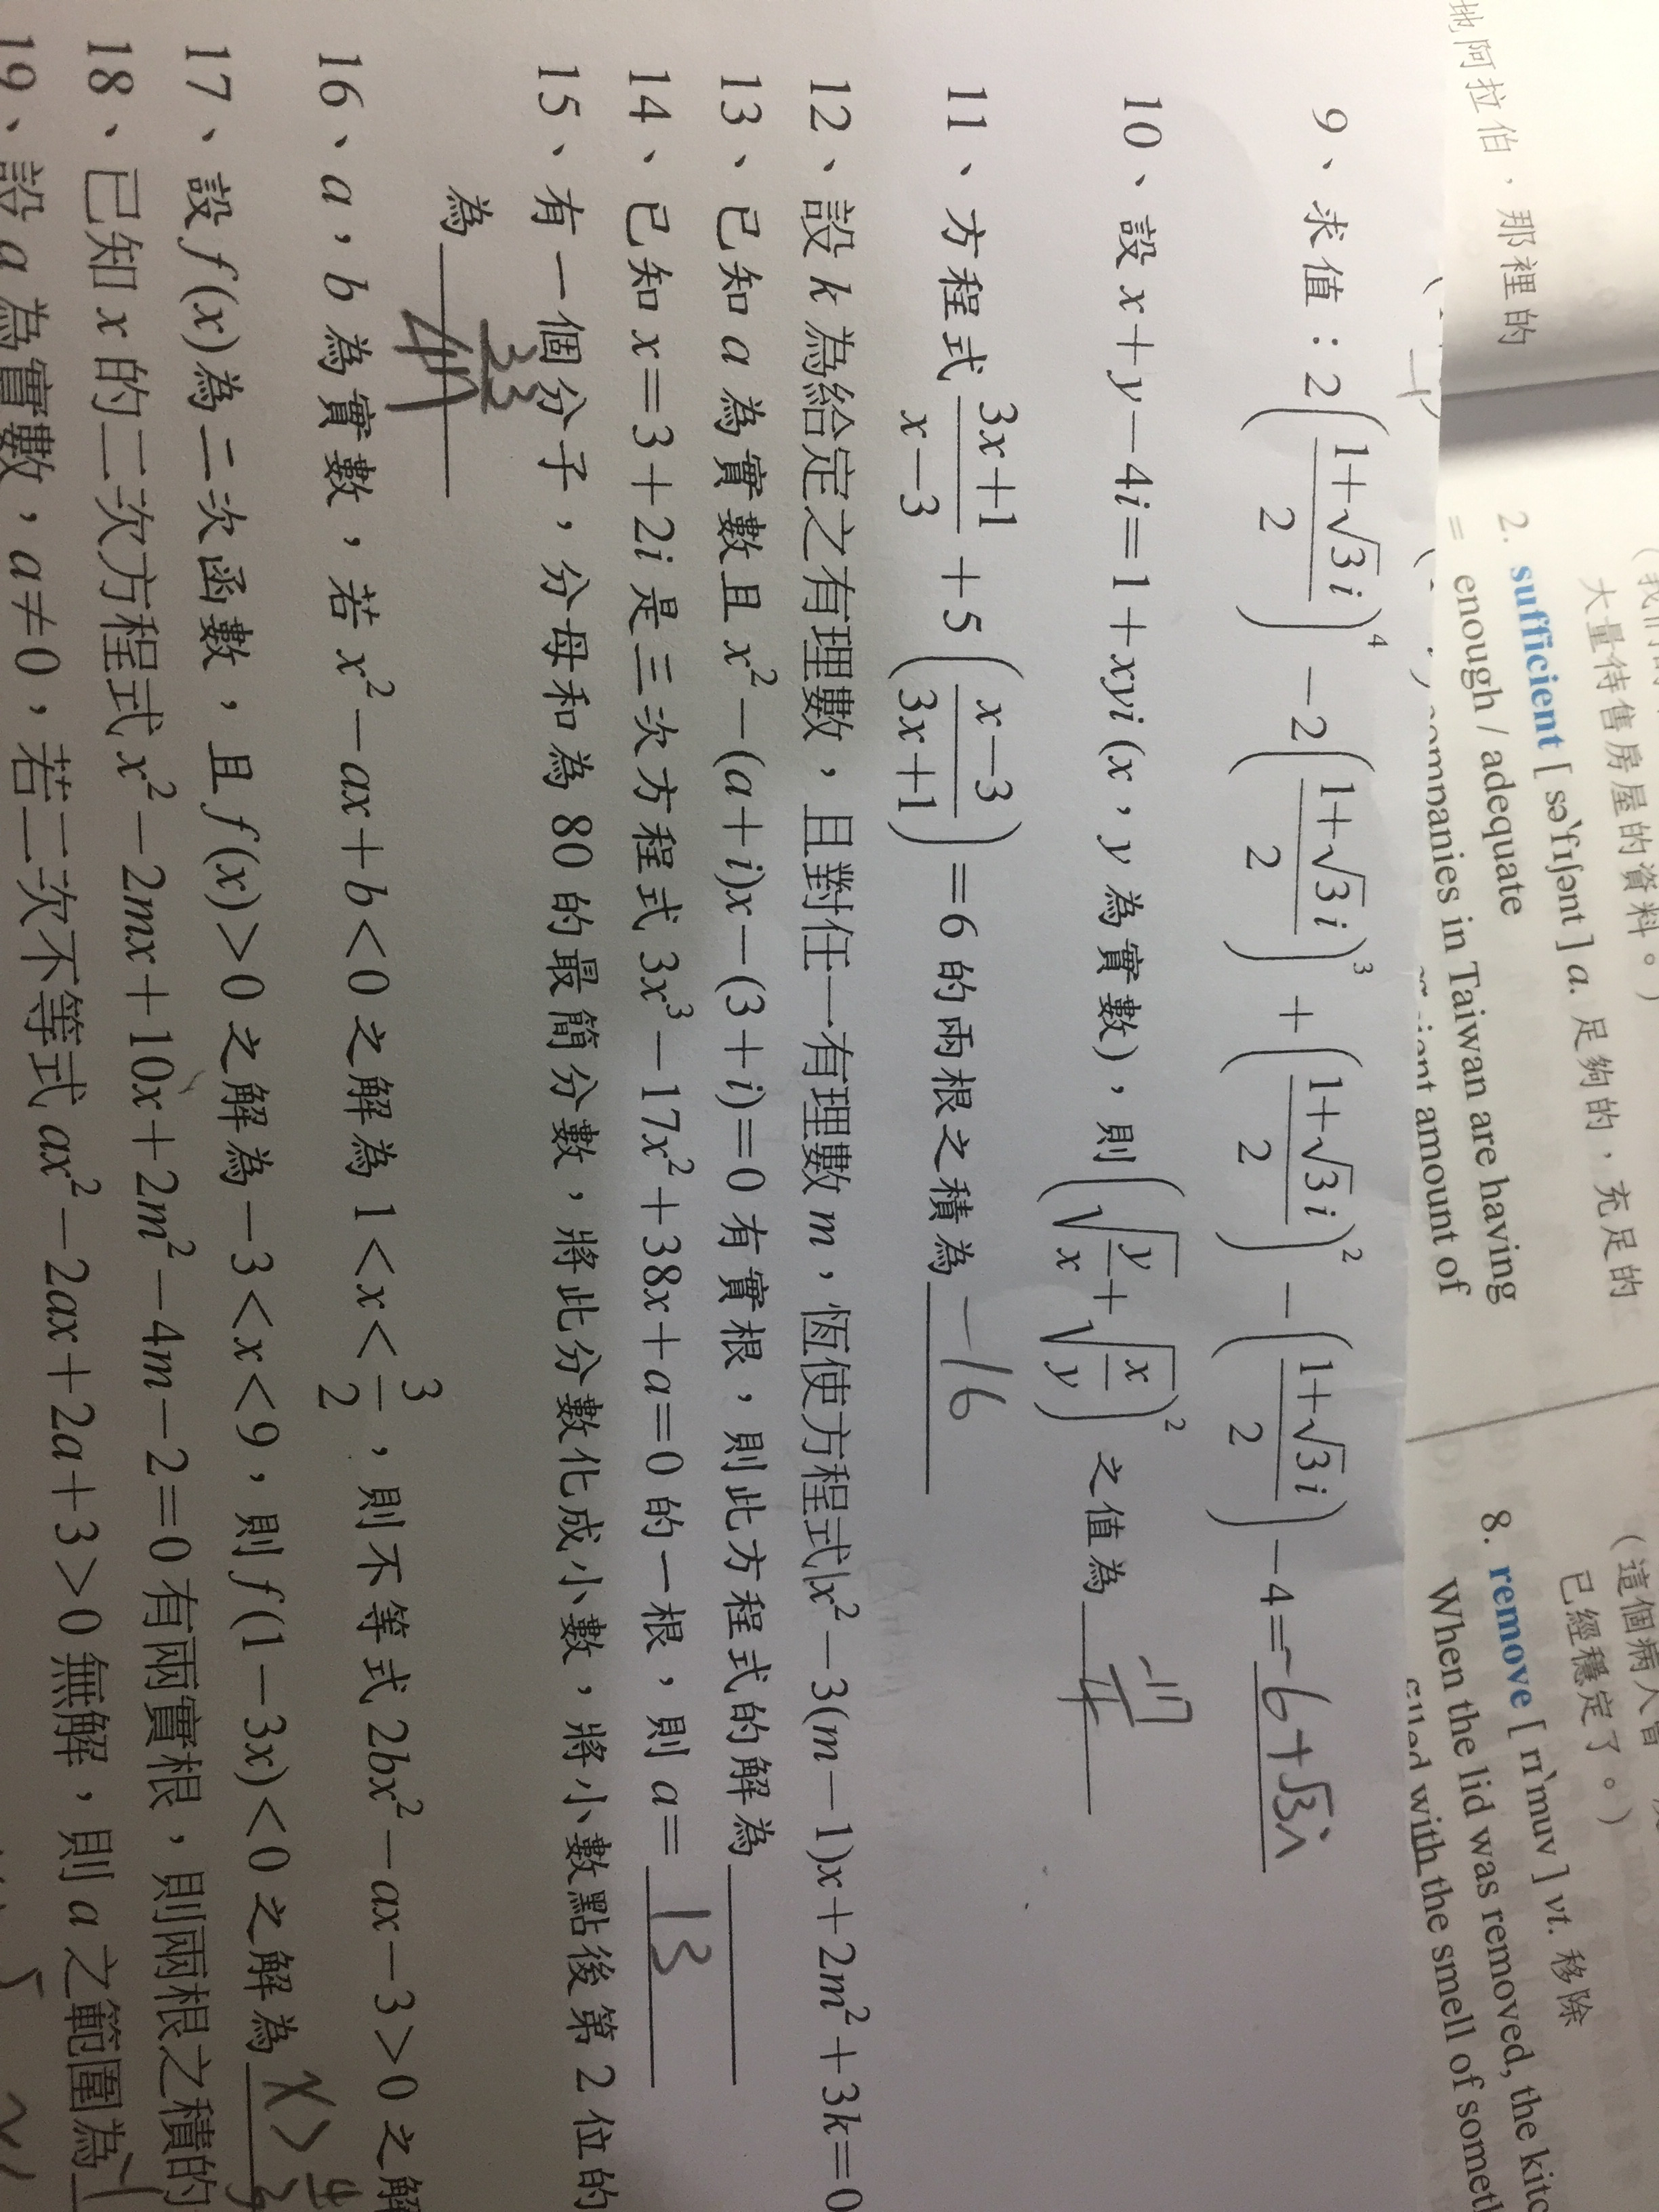 地阿拉伯，那裡的
大量待售房屋的資料。)
2. sufficient [ sə`fɪʃənt ] a. 足夠的，充足的
= enough / adequate
companies in Taiwan are having
amount of
(這個病人
已經穩定了。)
8. remove [ rɪ`muv ] vt. 移除
When the lid was removed, the kitc
filled with the smell of somet
9、求值：2((1+√3i)/2)⁴−2((1+√3i)/2)³+((1+√3i)/2)²−((1+√3i)/2)−4= -6+√3i
10、設 x+y−4i=1+xyi (x，y 為實數)，則(√(y/x)+√(x/y))² 之值為 -17/4
11、方程式 (3x+1)/(x−3)+5((x−3)/(3x+1))=6 的兩根之積為 -16
12、設 k 為給定之有理數，且對任一有理數 m，恆使方程式 x²−3(m−1)x+2m²+3k=0
13、已知 a 為實數且 x²−(a+i)x−(3+i)=0 有實根，則此方程式的解為
14、已知 x=3+2i 是三次方程式 3x³−17x²+38x+a=0 的一根，則 a= 13
15、有一個分子，分母和為 80 的最簡分數，將此分數化成小數，將小數點後第 2 位的
為 33/47
16、a，b 為實數，若 x²−ax+b<0 之解為 1<x<3/2，則不等式 2bx²−ax−3>0 之解
17、設 f(x)為二次函數，且 f(x)>0 之解為−3<x<9，則 f(1−3x)<0 之解為 x>4/3
18、已知 x 的二次方程式 x²−2mx+10x+2m²−4m−2=0 有兩實根，則兩根之積的
19、設 a 為實數，a≠0，若二次不等式 ax²−2ax+2a+3>0 無解，則 a 之範圍為